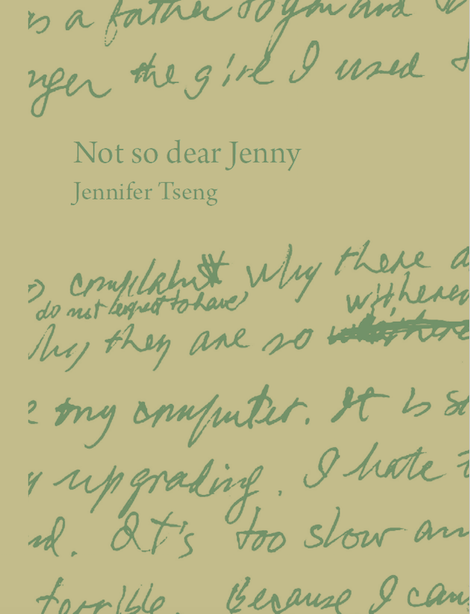 s a father to you and
nger the girl I used
Not so dear Jenny
Jennifer Tseng
complaint why there a
do not expect to have withered
Why they are so
my computer. It is s
upgrading. I hate t
nd. It's too slow an
terrible. Because I can